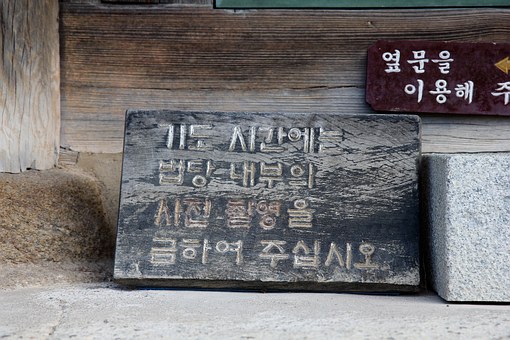 기도 시간에는
법당 내부의
사진 촬영을
금하여 주십시오
옆문을
이용해 주